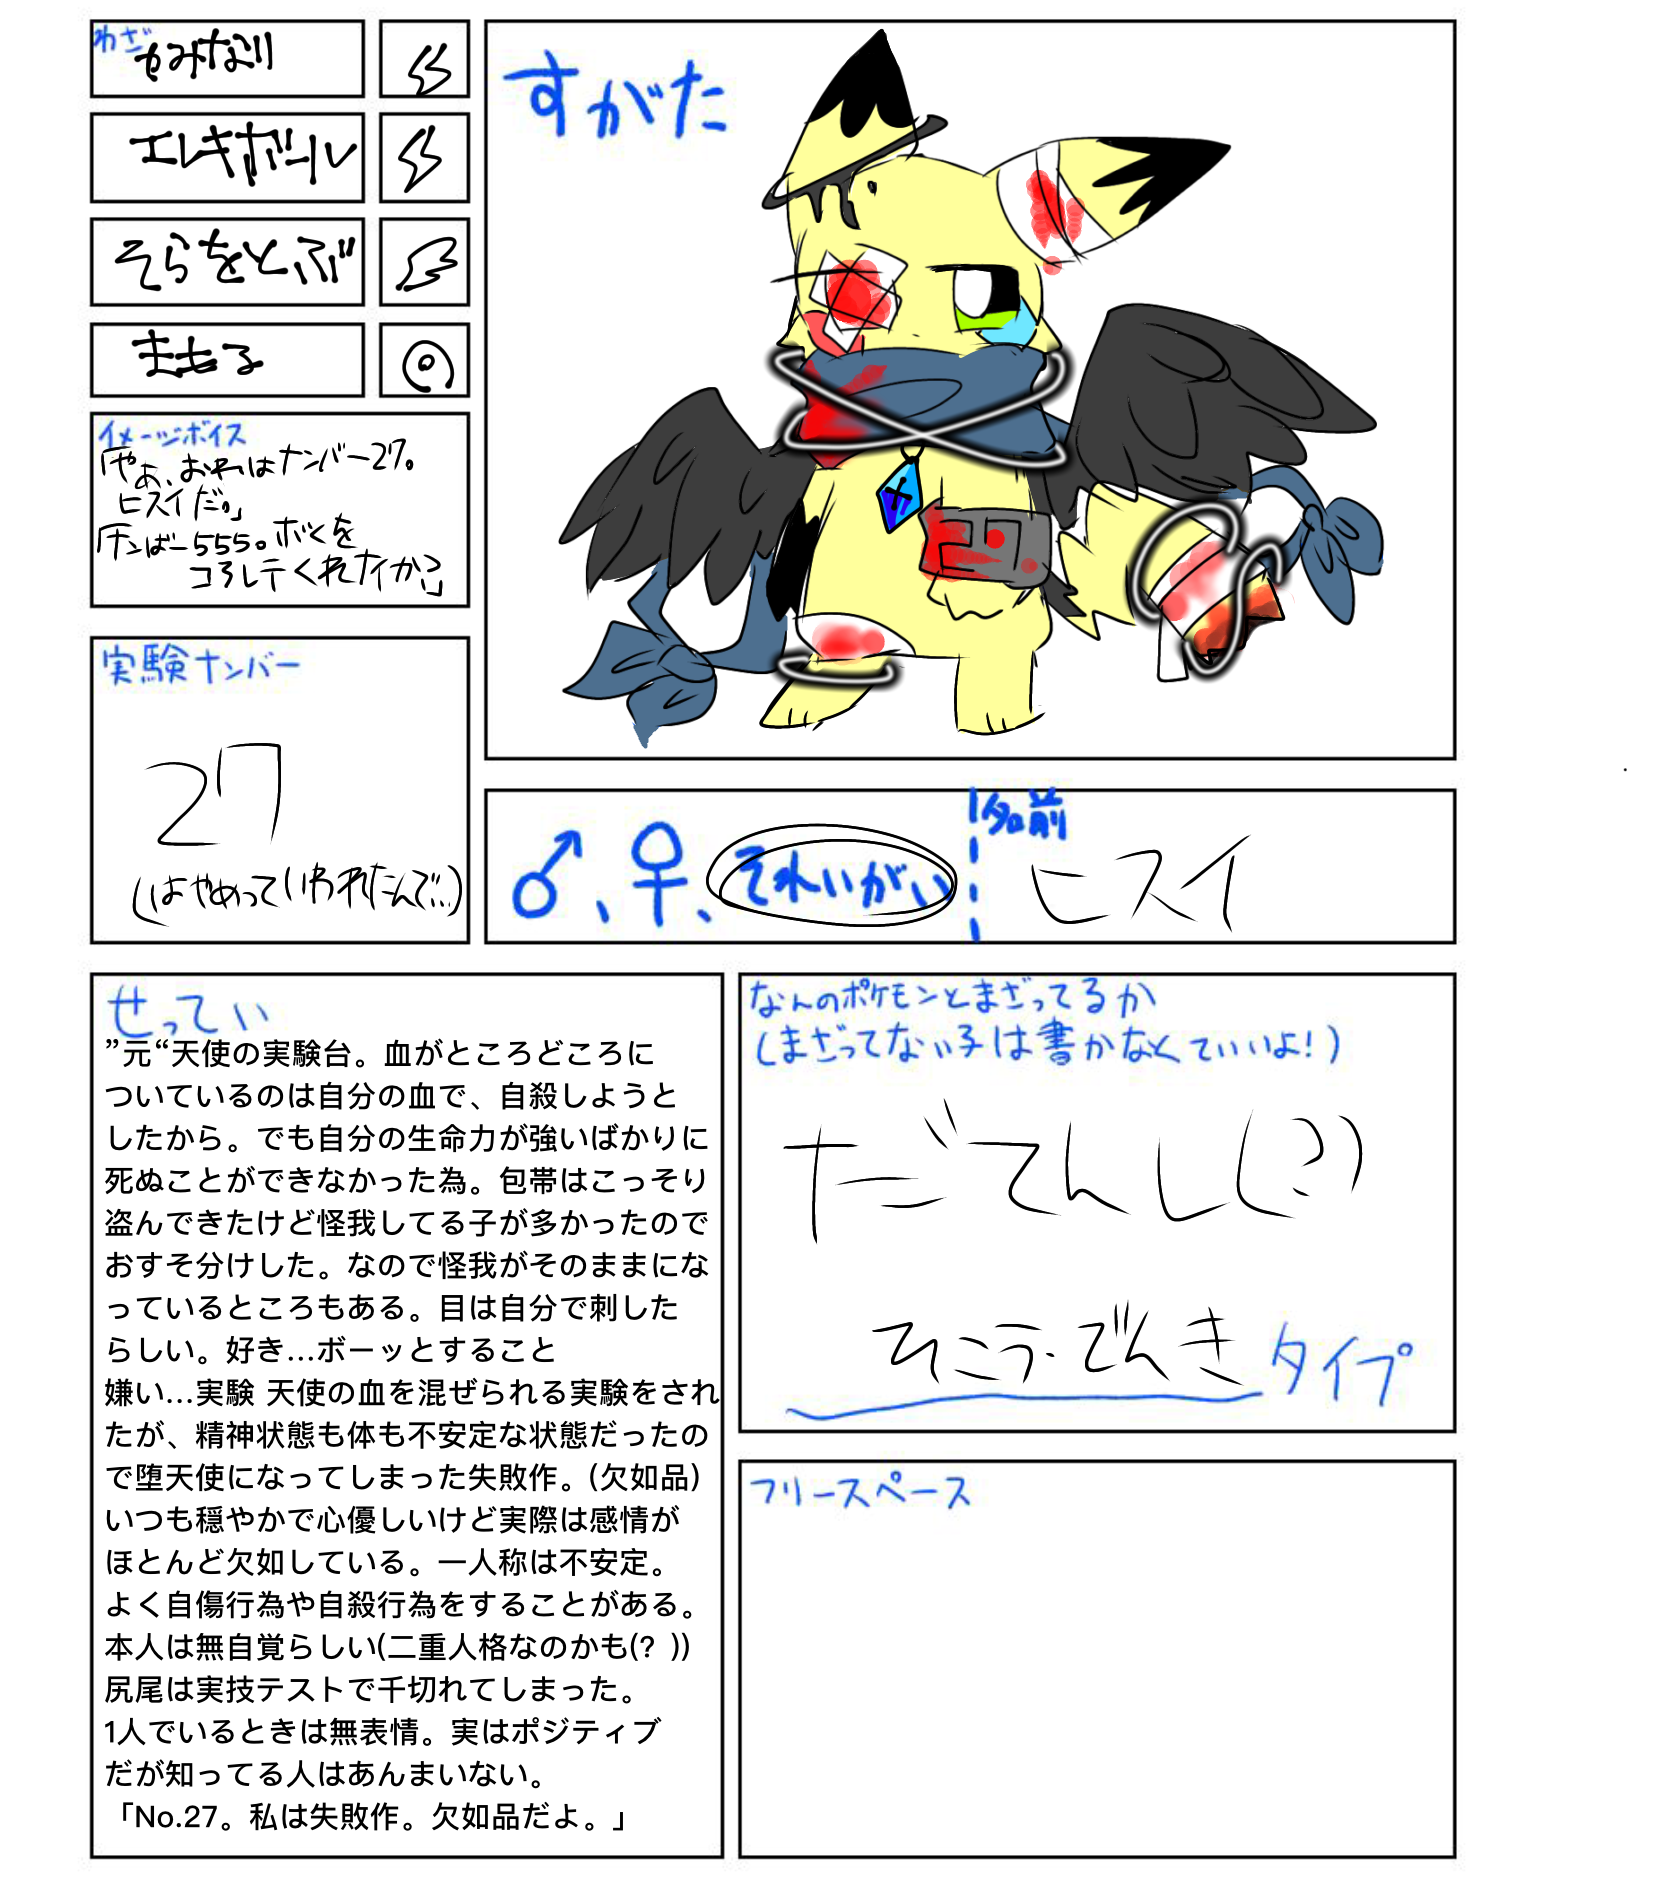 わざ
かみなり
エレキボール
そらをとぶ
まもる
イメージボイス
「やぁ、おれはナンバー27。
ヒスイだ。」
「ナンばー555。ボくを
コろしテくれナイか?」
実験ナンバー
27
(はやめっていわれたんで…)
すがた
27
♂、♀、それいがい
名前
ヒスイ
せってい
”元“天使の実験台。血がところどころに
ついているのは自分の血で、自殺しようと
したから。でも自分の生命力が強いばかりに
死ぬことができなかった為。包帯はこっそり
盗んできたけど怪我してる子が多かったので
おすそ分けした。なので怪我がそのままにな
っているところもある。目は自分で刺した
らしい。好き…ボーッとすること
嫌い…実験 天使の血を混ぜられる実験をされ
たが、精神状態も体も不安定な状態だったの
で堕天使になってしまった失敗作。(欠如品)
いつも穏やかで心優しいけど実際は感情が
ほとんど欠如している。一人称は不安定。
よく自傷行為や自殺行為をすることがある。
本人は無自覚らしい(二重人格なのかも(? ))
尻尾は実技テストで千切れてしまった。
1人でいるときは無表情。実はポジティブ
だが知ってる人はあんまいない。
「No.27。私は失敗作。欠如品だよ。」
なんのポケモンとまざってるか
(まざってない子は書かなくていいよ!)
だてんし(?)
ひこう・でんきタイプ
フリースペース